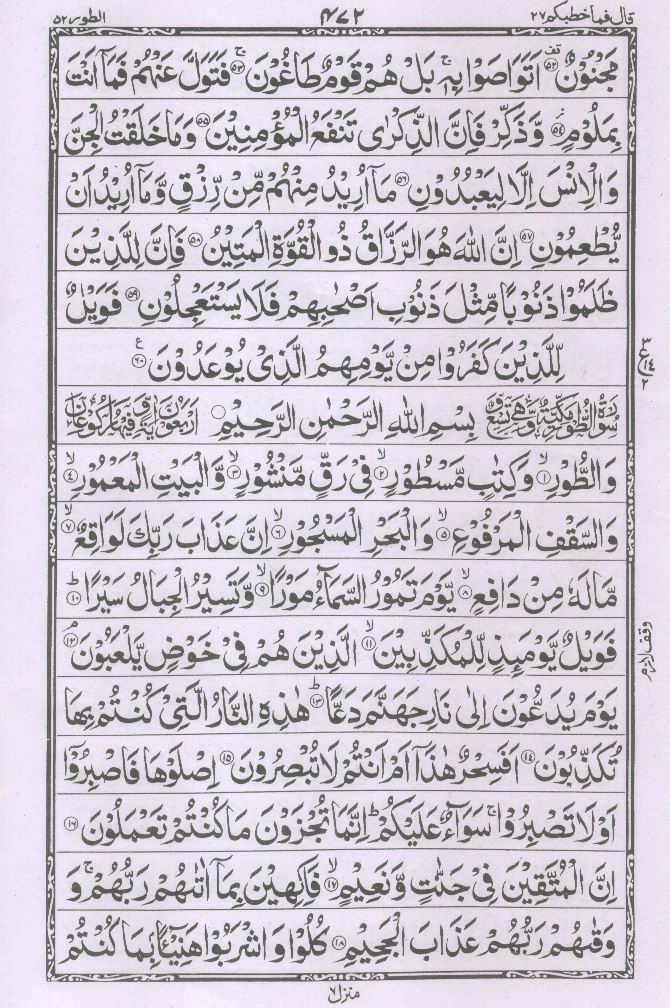 الطور ٥٢ ٤٧٢ قال فما خطبكم ٢٧
مَجْنُوْنٌ ۝٥٢ اَتَوَاصَوْا بِهٖ ۚ بَلْ هُمْ قَوْمٌ طَاغُوْنَ ۝٥٣ۚ فَتَوَلَّ عَنْهُمْ فَمَاۤ اَنْتَ
بِمَلُوْمٍ ۝٥٤ وَّذَكِّرْ فَاِنَّ الذِّكْرٰى تَنْفَعُ الْمُؤْمِنِيْنَ ۝٥٥ وَمَا خَلَقْتُ الْجِنَّ
وَالْاِنْسَ اِلَّا لِيَعْبُدُوْنِ ۝٥٦ مَاۤ اُرِيْدُ مِنْهُمْ مِّنْ رِّزْقٍ وَّمَاۤ اُرِيْدُ اَنْ
يُّطْعِمُوْنِ ۝٥٧ اِنَّ اللّٰهَ هُوَ الرَّزَّاقُ ذُو الْقُوَّةِ الْمَتِيْنُ ۝٥٨ فَاِنَّ لِلَّذِيْنَ
ظَلَمُوْا ذَنُوْبًا مِّثْلَ ذَنُوْبِ اَصْحٰبِهِمْ فَلَا يَسْتَعْجِلُوْنِ ۝٥٩ فَوَيْلٌ
لِّلَّذِيْنَ كَفَرُوْا مِنْ يَّوْمِهِمُ الَّذِيْ يُوْعَدُوْنَ ۝٦٠ع
سُوْرَةُ الطُّوْرِ مَكِّيَّةٌ وَّهِيَ تِسْعٌ بِسْمِ اللّٰهِ الرَّحْمٰنِ الرَّحِيْمِ ۝ اَرْبَعُوْنَ اٰيَةً وَّفِيْهَا رُكُوْعَانِ
وَالطُّوْرِ ۝١ۙ وَكِتٰبٍ مَّسْطُوْرٍ ۝٢ۙ فِيْ رَقٍّ مَّنْشُوْرٍ ۝٣ۙ وَّالْبَيْتِ الْمَعْمُوْرِ ۝٤ۙ
وَالسَّقْفِ الْمَرْفُوْعِ ۝٥ۙ وَالْبَحْرِ الْمَسْجُوْرِ ۝٦ۙ اِنَّ عَذَابَ رَبِّكَ لَوَاقِعٌ ۝٧ۙ
مَّا لَهٗ مِنْ دَافِعٍ ۝٨ۙ يَّوْمَ تَمُوْرُ السَّمَآءُ مَوْرًا ۝٩ۙ وَّتَسِيْرُ الْجِبَالُ سَيْرًا ۝١٠ؕ
فَوَيْلٌ يَّوْمَئِذٍ لِّلْمُكَذِّبِيْنَ ۝١١ۙ الَّذِيْنَ هُمْ فِيْ خَوْضٍ يَّلْعَبُوْنَ ۝١٢ۘ
يَوْمَ يُدَعُّوْنَ اِلٰى نَارِ جَهَنَّمَ دَعًّا ۝١٣ؕ هٰذِهِ النَّارُ الَّتِيْ كُنْتُمْ بِهَا
تُكَذِّبُوْنَ ۝١٤ اَفَسِحْرٌ هٰذَاۤ اَمْ اَنْتُمْ لَا تُبْصِرُوْنَ ۝١٥ اِصْلَوْهَا فَاصْبِرُوْۤا
اَوْ لَا تَصْبِرُوْا ۚ سَوَآءٌ عَلَيْكُمْ ؕ اِنَّمَا تُجْزَوْنَ مَا كُنْتُمْ تَعْمَلُوْنَ ۝١٦
اِنَّ الْمُتَّقِيْنَ فِيْ جَنّٰتٍ وَّنَعِيْمٍ ۝١٧ۙ فٰكِهِيْنَ بِمَاۤ اٰتٰىهُمْ رَبُّهُمْ ۚ وَ
وَقٰىهُمْ رَبُّهُمْ عَذَابَ الْجَحِيْمِ ۝١٨ كُلُوْا وَاشْرَبُوْا هَنِيْٓئًۢا بِمَا كُنْتُمْ
٣ ع ١٤ ٢
وقف لازم
منزل ٧